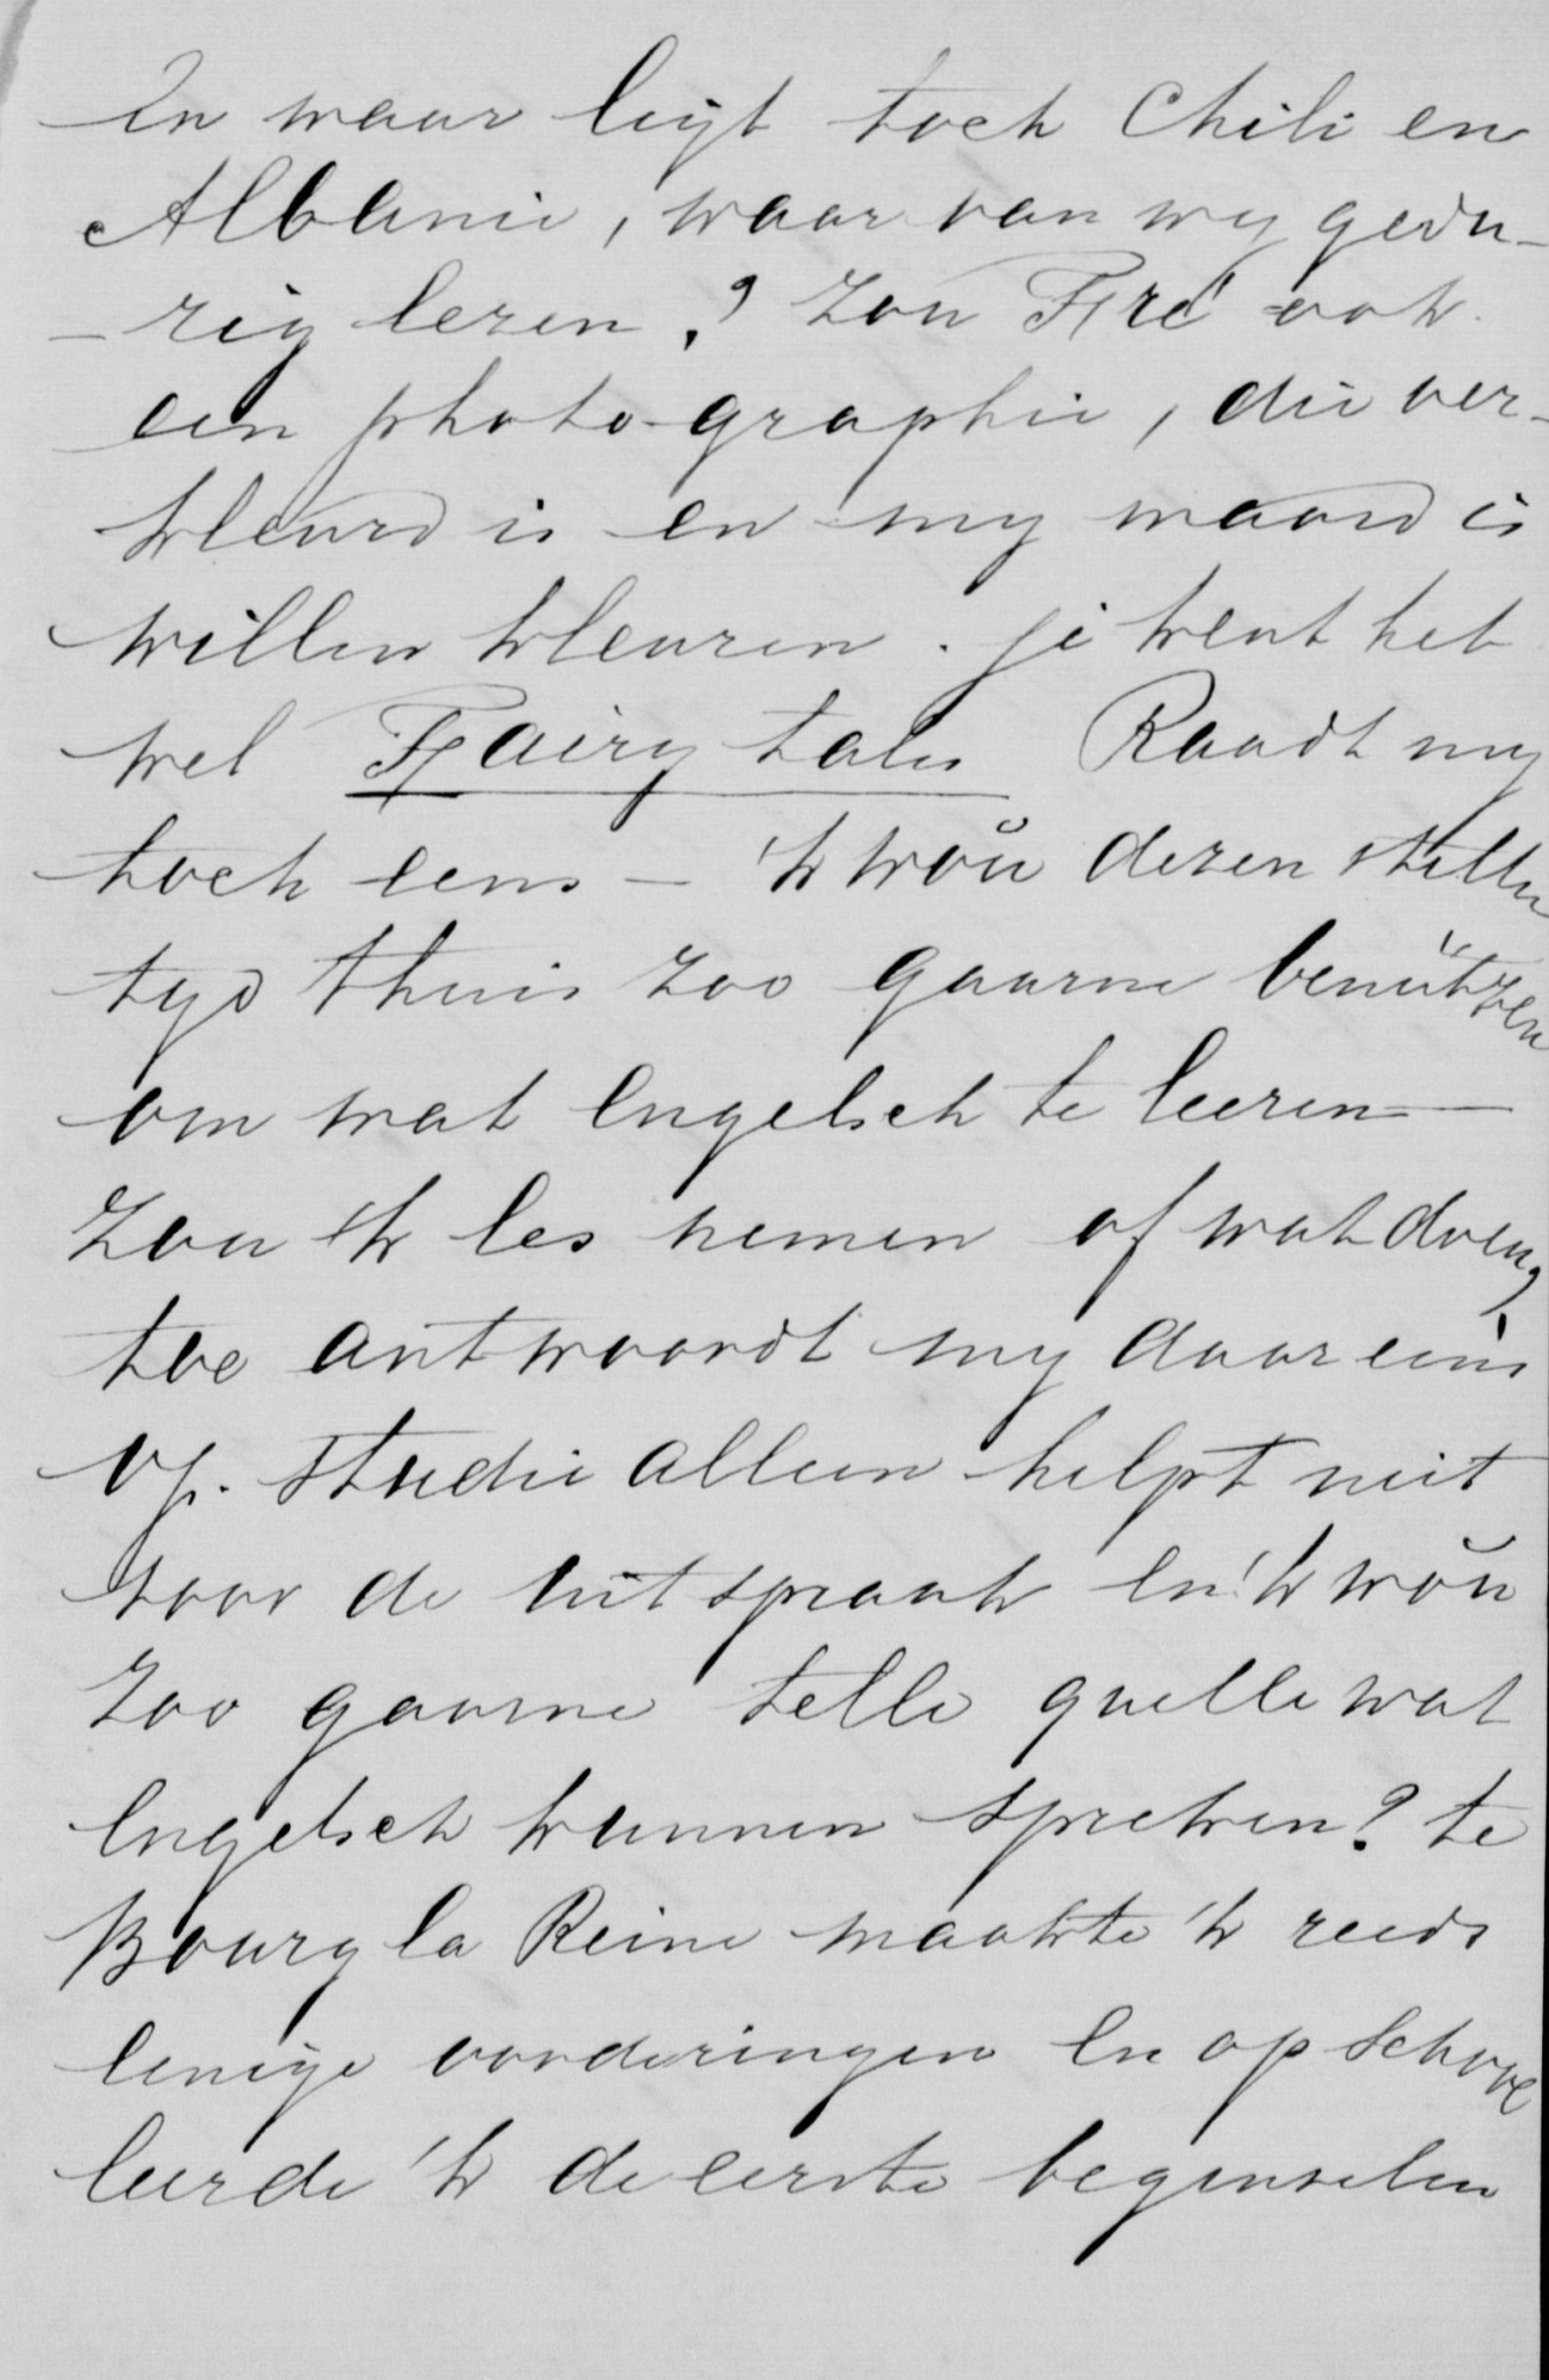 En waar ligt toch Chili en
Albanie, waar van wy gedu-
-rig lezen? Zou Fré ook
een photo-graphie, die ver-
kleurd is en my waard is
willen kleuren. je kent het
wel Fairy tales Raadt my
toch eens - 'k woŭ dezen stillen
tyd thuis zoo gaarne benutzen
om wat Engelsch te leeren -
Zou 'k les nemen of wat doen,
toe antwoordt my daar eens
op. Studie alleen helpt niet
voor de uitspraak en 'k woŭ
zoo gaarne telle quelle wat
Engelsch kunnen spreken? te
Bourg la Reine maakte 'k reeds
eenige vorderingen en op school
leerde 'k de eerste beginselen